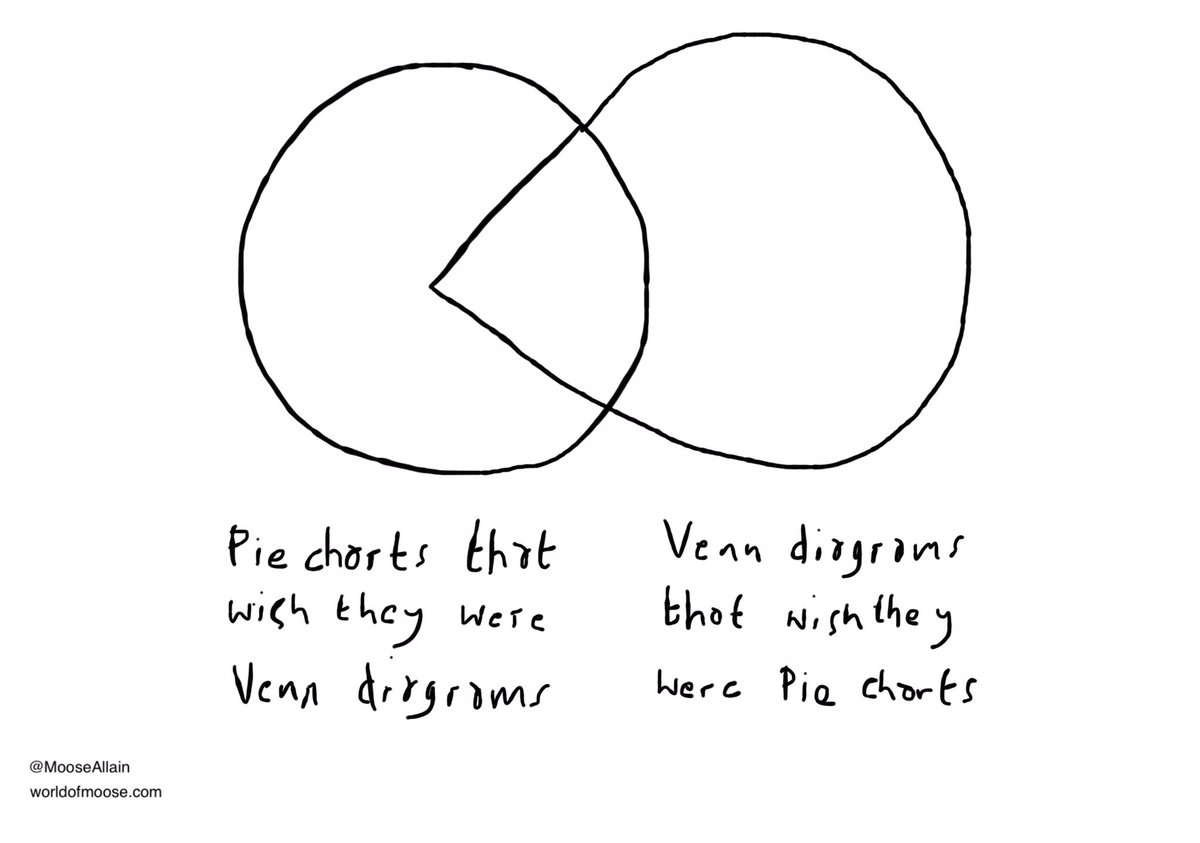 Pie charts that
wish they were
Venn diagrams
Venn diagrams
that wish they
were Pie charts
@MooseAllain
worldofmoose.com